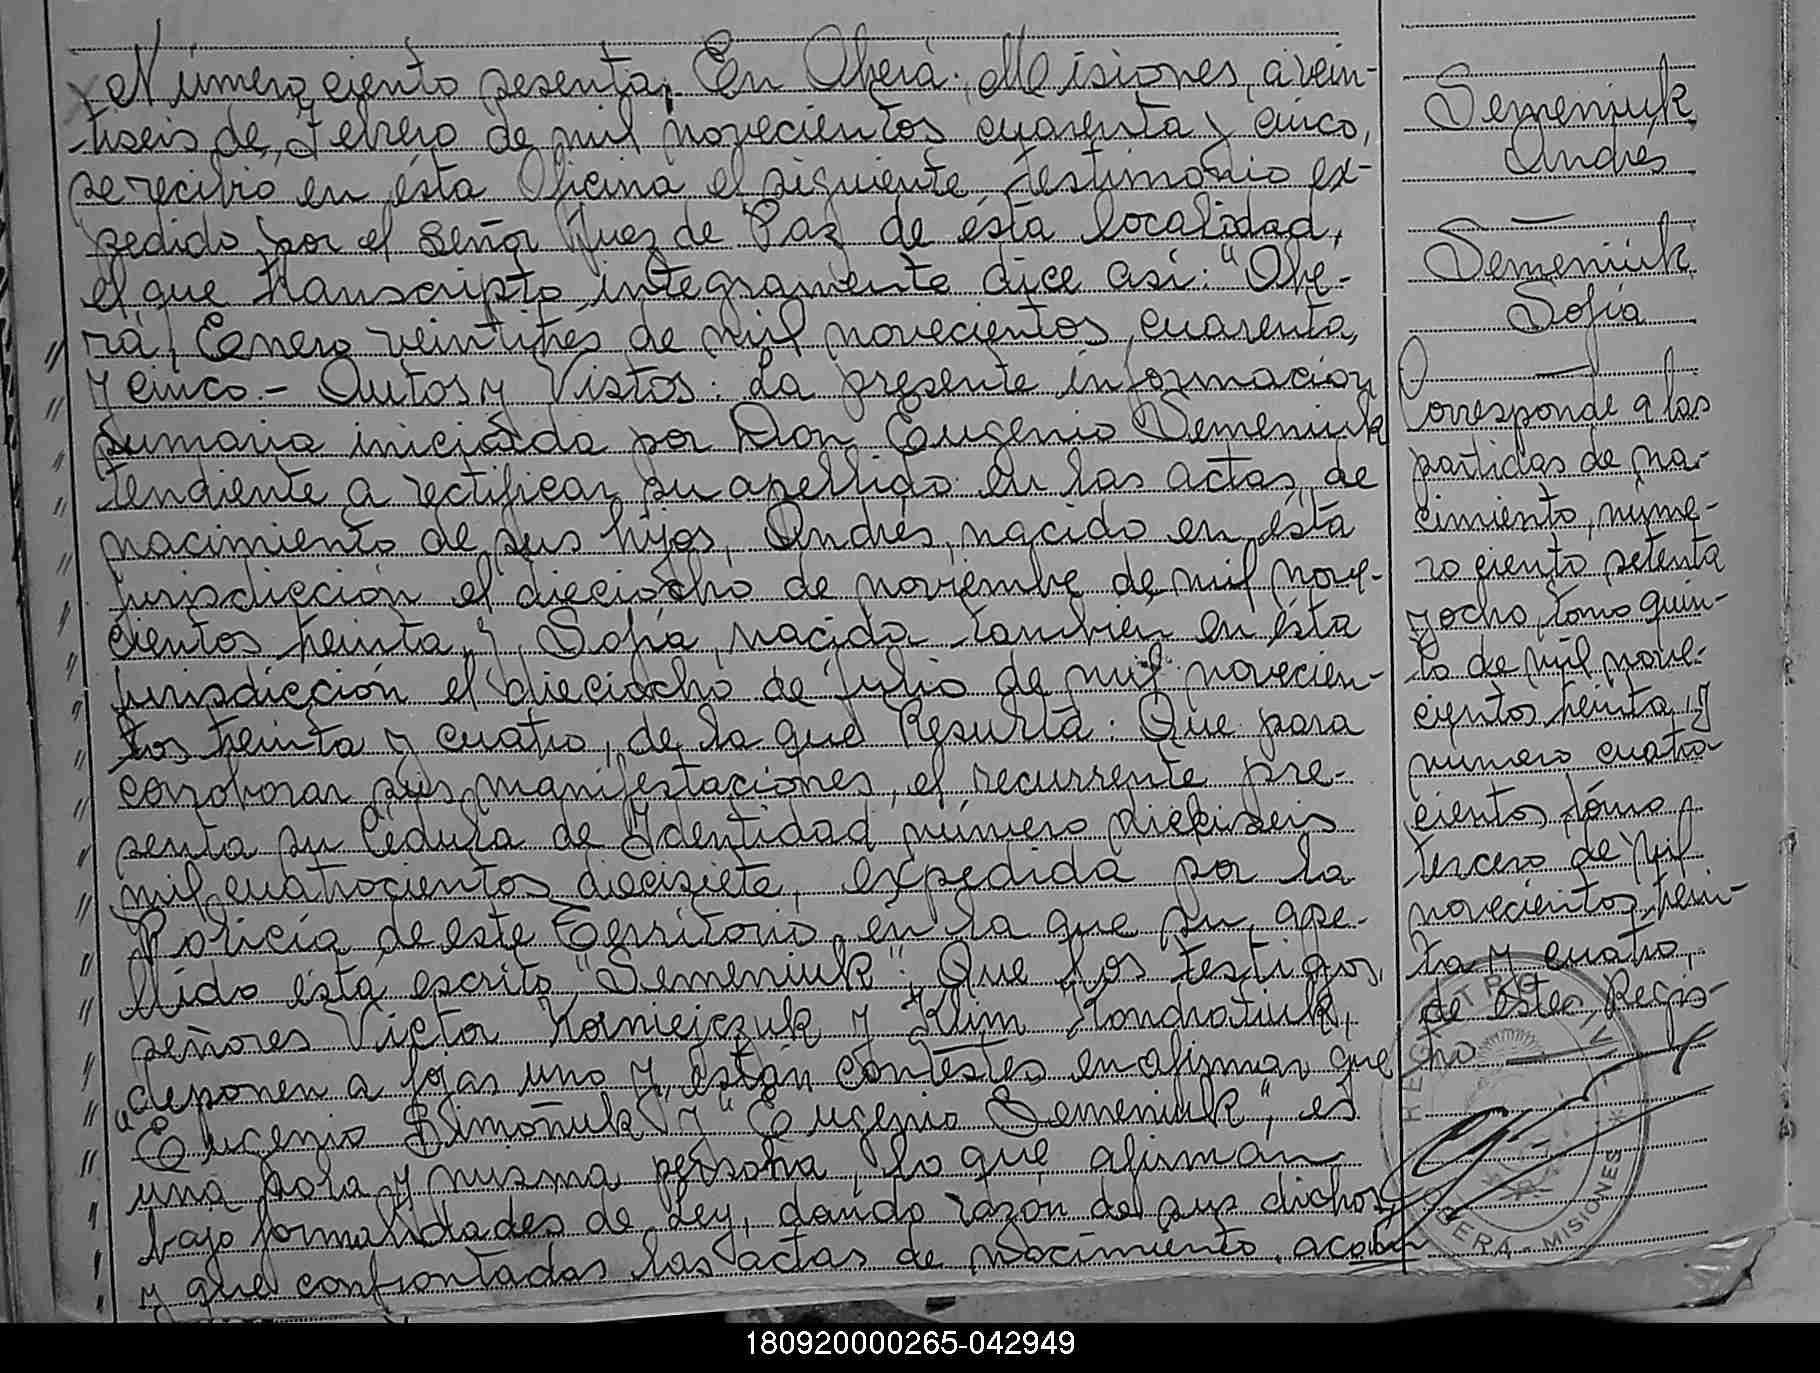 Número ciento sesenta. En Oberá, Misiones, a vein-
tiseis de, Febrero de mil novecientos cuarenta y cinco,
se recibió en ésta Oficina el siguiente testimonio ex-
pedido por el señor Juez de Paz de ésta localidad,
el que transcripto integramente dice así: "Obe-
rá, Enero veintitres de mil novecientos cuarenta
y cinco.- Autos y Vistos: La presente información
sumaria iniciada por Don Eugenio Semeniuk
tendiente a rectificar su apellido en las actas de
nacimiento de sus hijos, Andrés, nacido en ésta
jurisdicción el dieciocho de noviembre de mil nove-
cientos treinta y Sofía, nacida también en ésta
jurisdicción el dieciocho de julio de mil novecien-
tos treinta y cuatro, de la que Resulta: Que para
corroborar sus manifestaciones, el recurrente pre-
senta su Cédula de Identidad número dieciseis
mil cuatrocientos diecisiete, expedida por la
Policía de este Territorio en la que su ape-
llido está escrito "Semeniuk"; Que los testigos,
señores Victor Korniejczuk y Klim Kondratiuk,
deponen a fojas uno y están contestes en afirmar que
"Eugenio Simoñuk" y "Eugenio Semeniuk", es
una sola y misma persona, lo que afirman
bajo formalidades de Ley, dando razón de sus dichos,
y que confrontadas las actas de nacimiento, acom
Semeniuk
Andrés
Semeniuk
Sofía
Corresponde a las
partidas de na-
cimiento, núme-
ro ciento setenta
y ocho, tomo quin-
to de mil nove-
cientos treinta, y
número cuatro-
cientos, tomo
tercero de mil
novecientos trein-
ta y cuatro,
de éste Regis-
tro
REGISTRO CIVIL
OBERÁ - MISIONES
180920000265-042949